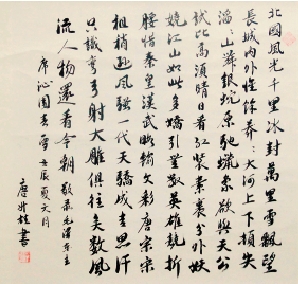 北國風光千里冰封萬里雪飄望
長城內外惟餘莽々大河上下頓失
滔々山舞銀蛇原馳蠟象欲與天公
試比高須晴日看紅裝素裹分外妖
嬈江山如此多嬌引無數英雄競折
腰惜秦皇漢武略輸文彩唐宗宋
祖稍遜風騷一代天驕成吉思汗
只識彎弓射大雕俱往矣數風
流人物還看今朝 敬录毛澤東主
席沁園春雪 壬辰夏 月
書